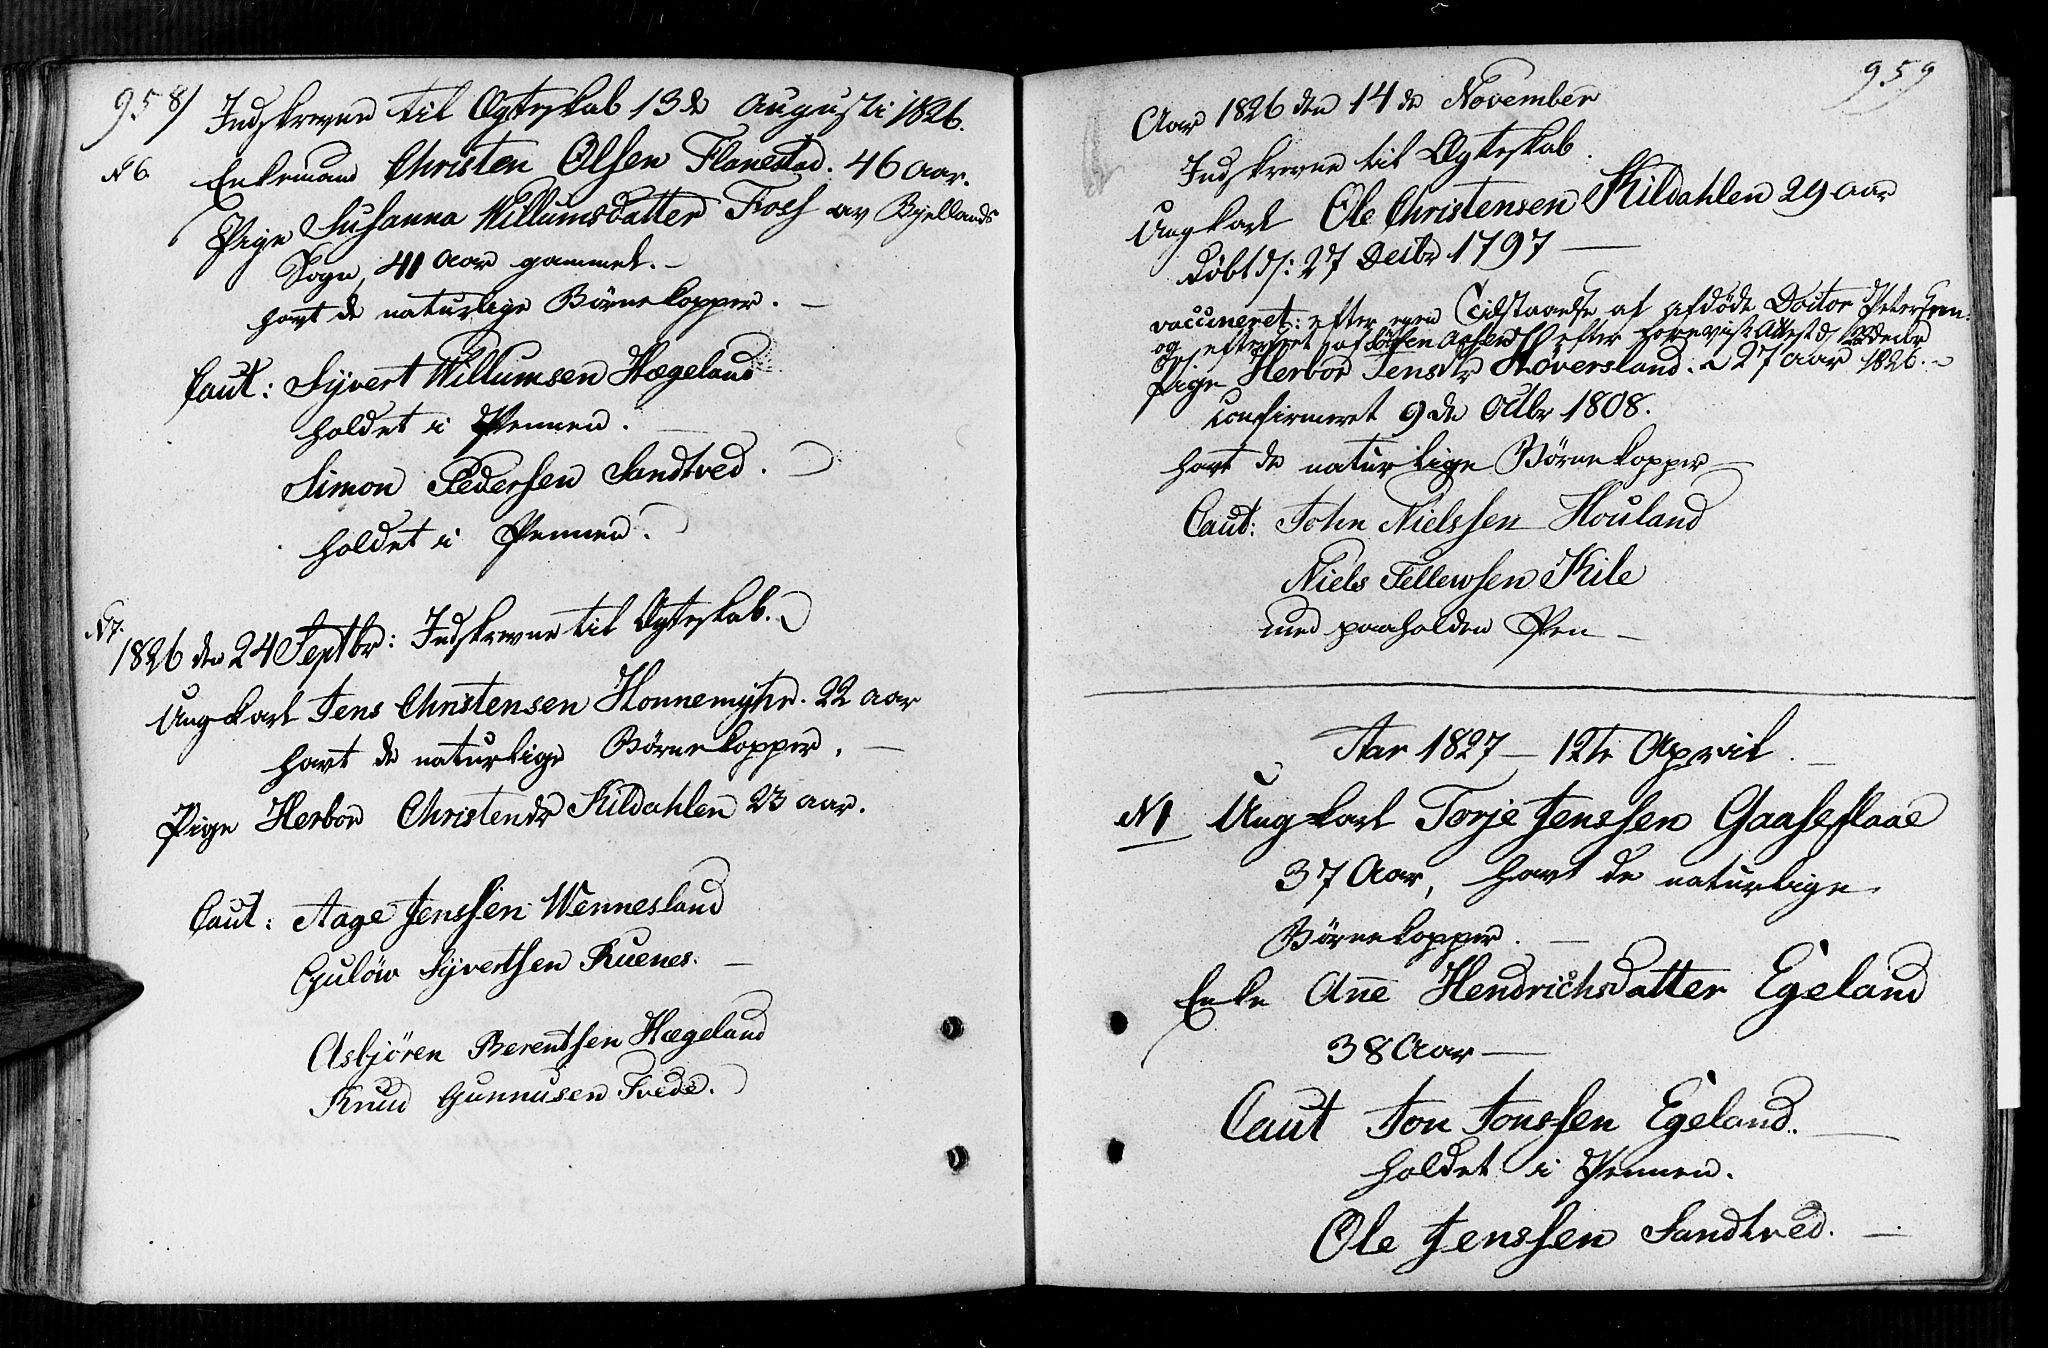 958/
Indskrevne til Ægteskab 13de Augusti 1826.
N 6
Enkemand Christen Olsen Flanestad. 46 Aar.
Pige Susanna Willumsdatter Foss av Bjellands
Sogn, 41 Aar gammel. -
havt de naturlige Børnekopper. -
Caut: Syvert Willumsen Hægeland
holdet i Pennen.
Simon Pedersen Sandtved.
holdet i Pennen.
N 7.
1826 den 24 Septbr: Indskrevne til Ægteskab.
Ungkarl Jens Christensen Honnemyhr. 22 aar
havt de naturlige Børnekopper. -
Pige Herbor Christendr Kildahlen 23 aar.
Caut: Aage Jenssen Wennesland
Guløv Syvertsen Ruenes. -
Asbjören Berentsen Hægeland
Knud Gunnusen Tvede.
959
Aar 1826 den 14de November
Indskrevne til Ægteskab.
Ungkarl Ole Christensen Kildahlen 29 aar
Døbt d: 27 Decbr 1797 -
vaccineret: efter egen Tilstaaelse af afdøde Doctor Petersen.
og efter forevist Attest d
Pige Herbor Jensdr Høversland. 27 aar 1826. -
confirmeret 9de Octbr 1808.
havt de naturlige Børnekopper -
Caut: John Nielssen Houland
Niels Tellewsen Kile
med paaholden Pen -
Aar 1827 - 12te April. -
N 1 Ungkarl Torje Jenssen Gaaseflaae
37 Aar, havt de naturlige
Børnekopper. -
Enke Ane Hendrichsdatter Egeland
38 Aar -
Caut Jon Jonssen Egeland. -
holdet i Pennen.
Ole Jenssen Sandtved. -